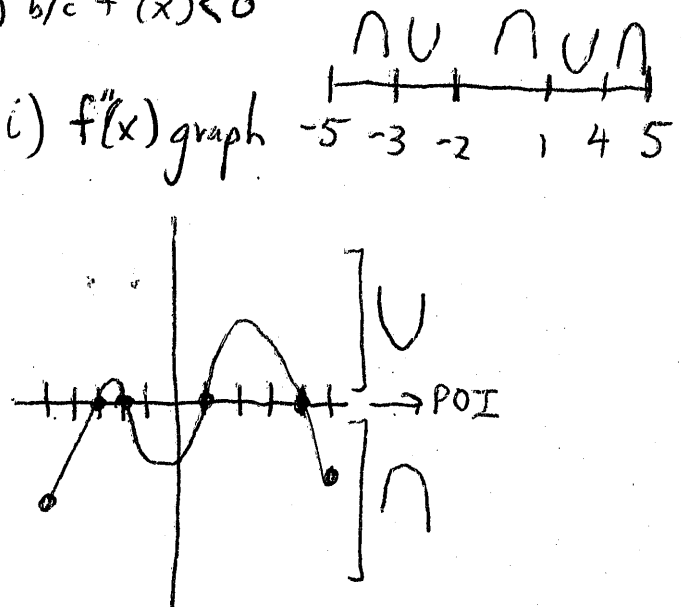 ) b/c f (x) < 0
i) f"(x) graph
-5 -3 -2 1 4 5
→ POI